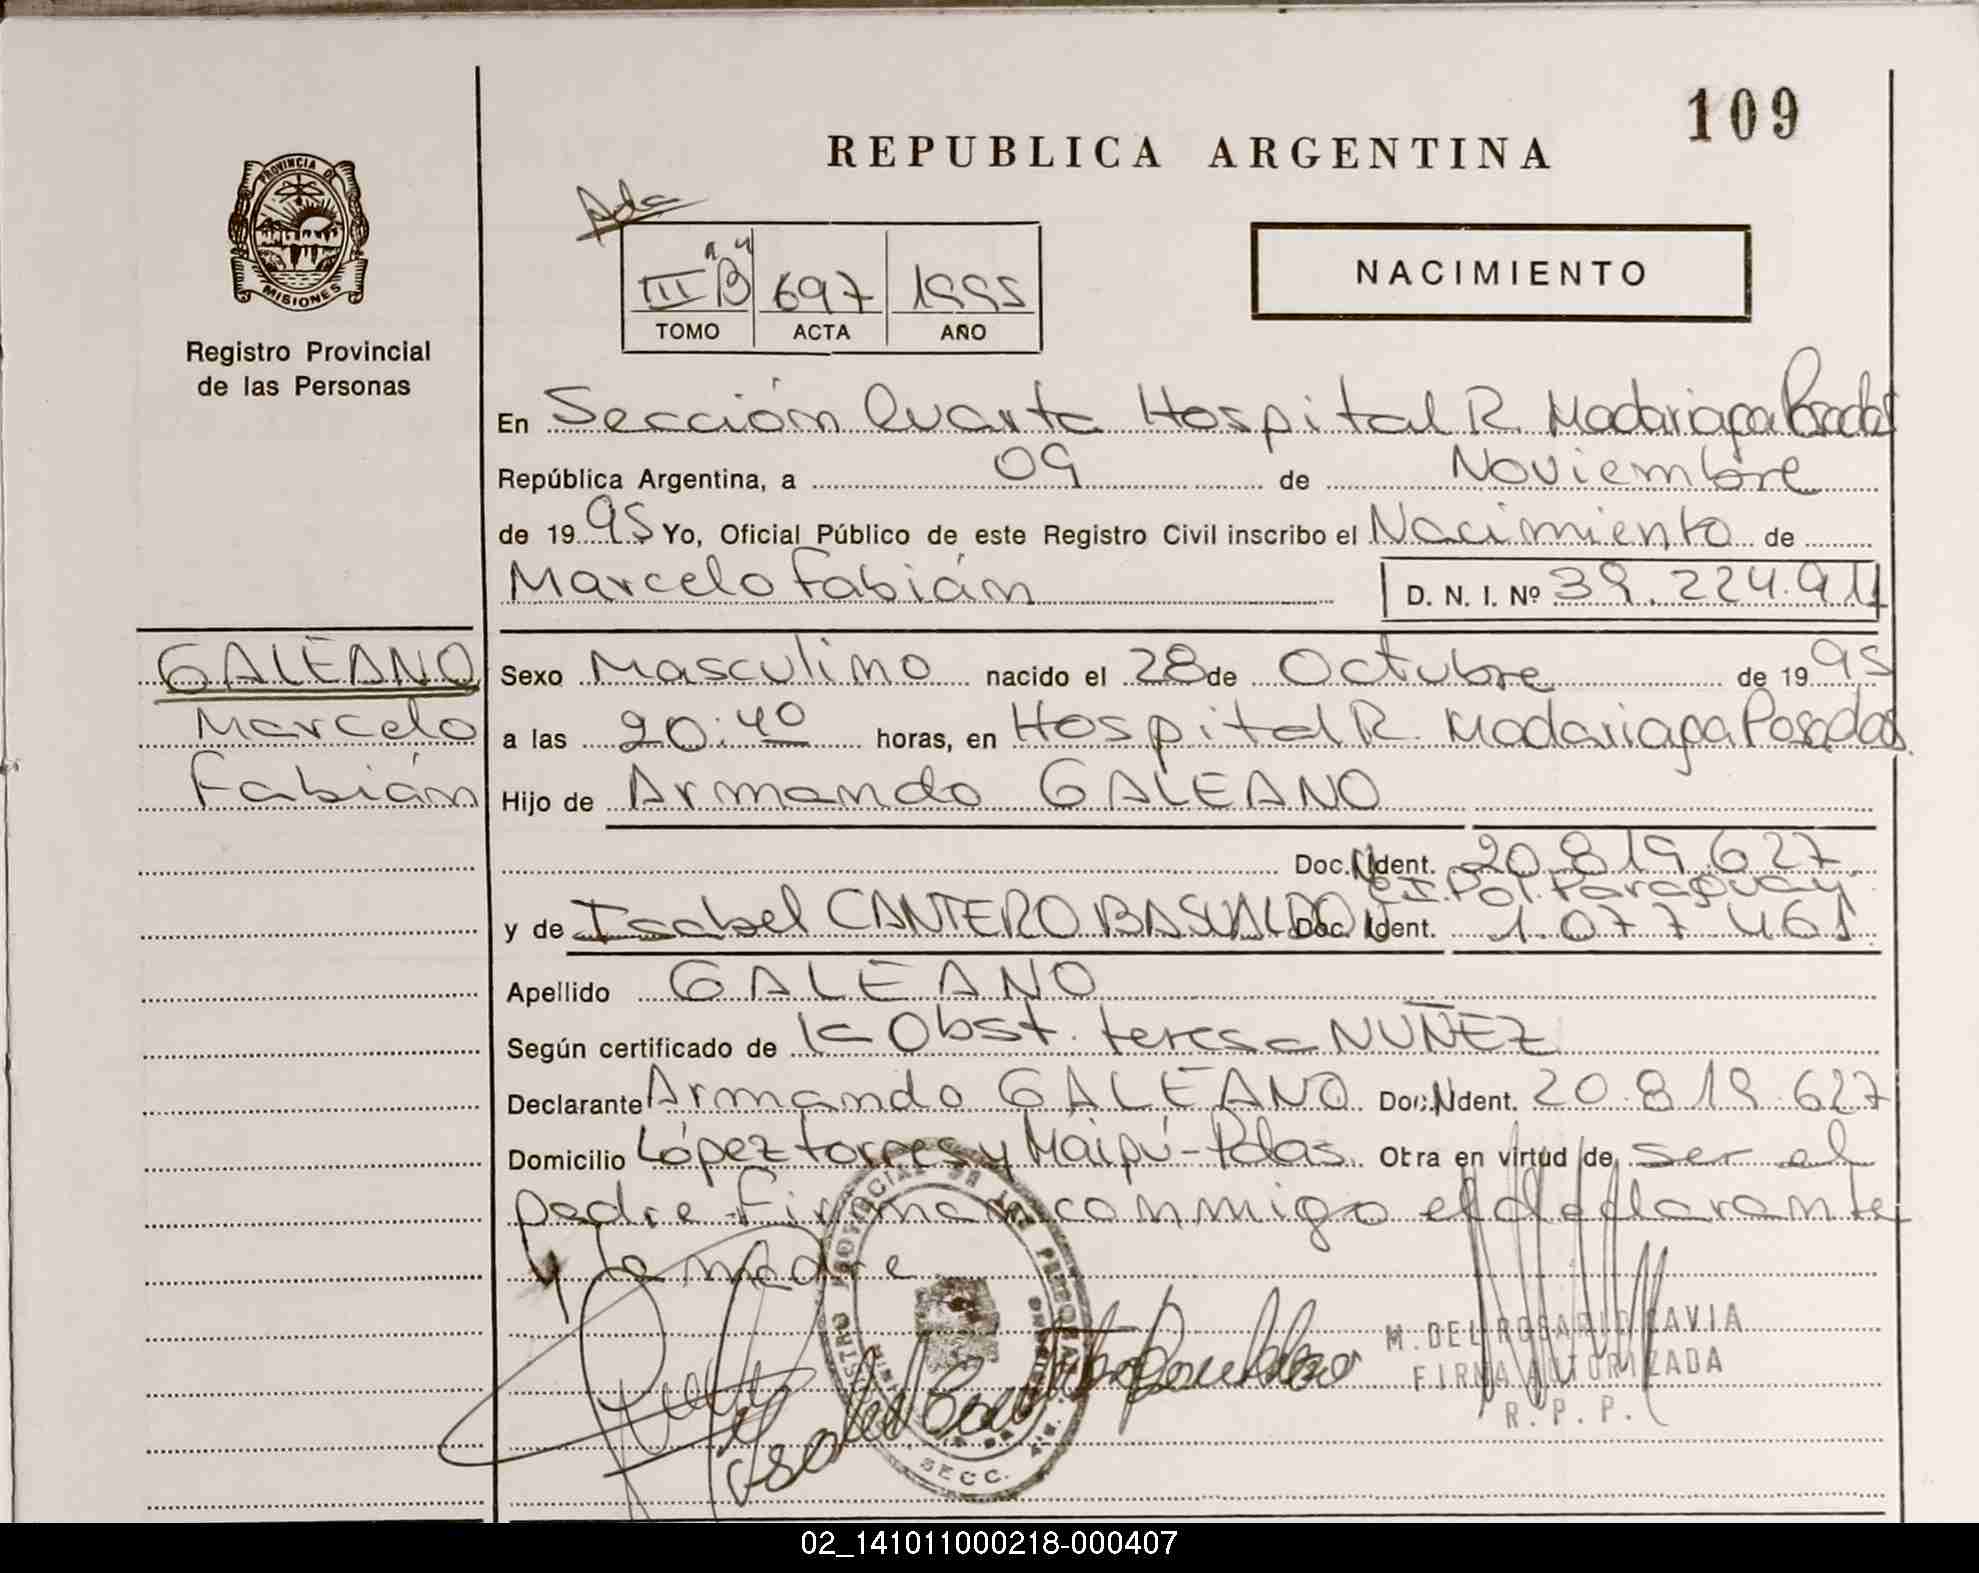 109
REPUBLICA ARGENTINA
PROVINCIA DE
MISIONES
Registro Provincial
de las Personas
Ada
III "B" 697 1995
TOMO ACTA AÑO
NACIMIENTO
En Sección Cuarta Hospital R. Madariaga Posadas
República Argentina, a 09 de Noviembre
de 1995 Yo, Oficial Público de este Registro Civil inscribo el Nacimiento de
Marcelo Fabián D. N. I. Nº 39.224.911
GALEANO
Marcelo
Fabián
Sexo Masculino nacido el 28 de Octubre de 1995
a las 20:40 horas, en Hospital R. Madariaga Posadas
Hijo de Armando GALEANO
Doc. Ident. 20.819.627
C.I. Pol. Paraguay
y de Isabel CANTERO BASUALDO Doc. Ident. 1.077.461
Apellido GALEANO
Según certificado de la Obst. teresa NUÑEZ
Declarante Armando GALEANO Doc. Ident. 20.819.627
Domicilio López torres y Maipú - Pdas. Otra en virtud de ser el
padre firman conmigo el declarante
y la madre
M. DEL ROSARIO SAVIA
FIRMA AUTORIZADA
R. P. P.
SECC.
02_141011000218-000407